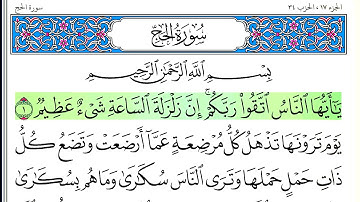 الجزء ١٧ ، الحزب ٣٤
سورة الحج
سُورَةُ الحَجِّ
بِسْمِ ٱللَّهِ ٱلرَّحْمَٰنِ ٱلرَّحِيمِ
يَٰٓأَيُّهَا ٱلنَّاسُ ٱتَّقُوا۟ رَبَّكُمْ ۚ إِنَّ زَلْزَلَةَ ٱلسَّاعَةِ شَىْءٌ عَظِيمٌ ١
يَوْمَ تَرَوْنَهَا تَذْهَلُ كُلُّ مُرْضِعَةٍ عَمَّآ أَرْضَعَتْ وَتَضَعُ كُلُّ
ذَاتِ حَمْلٍ حَمْلَهَا وَتَرَى ٱلنَّاسَ سُكَٰرَىٰ وَمَا هُم بِسُكَٰرَىٰ